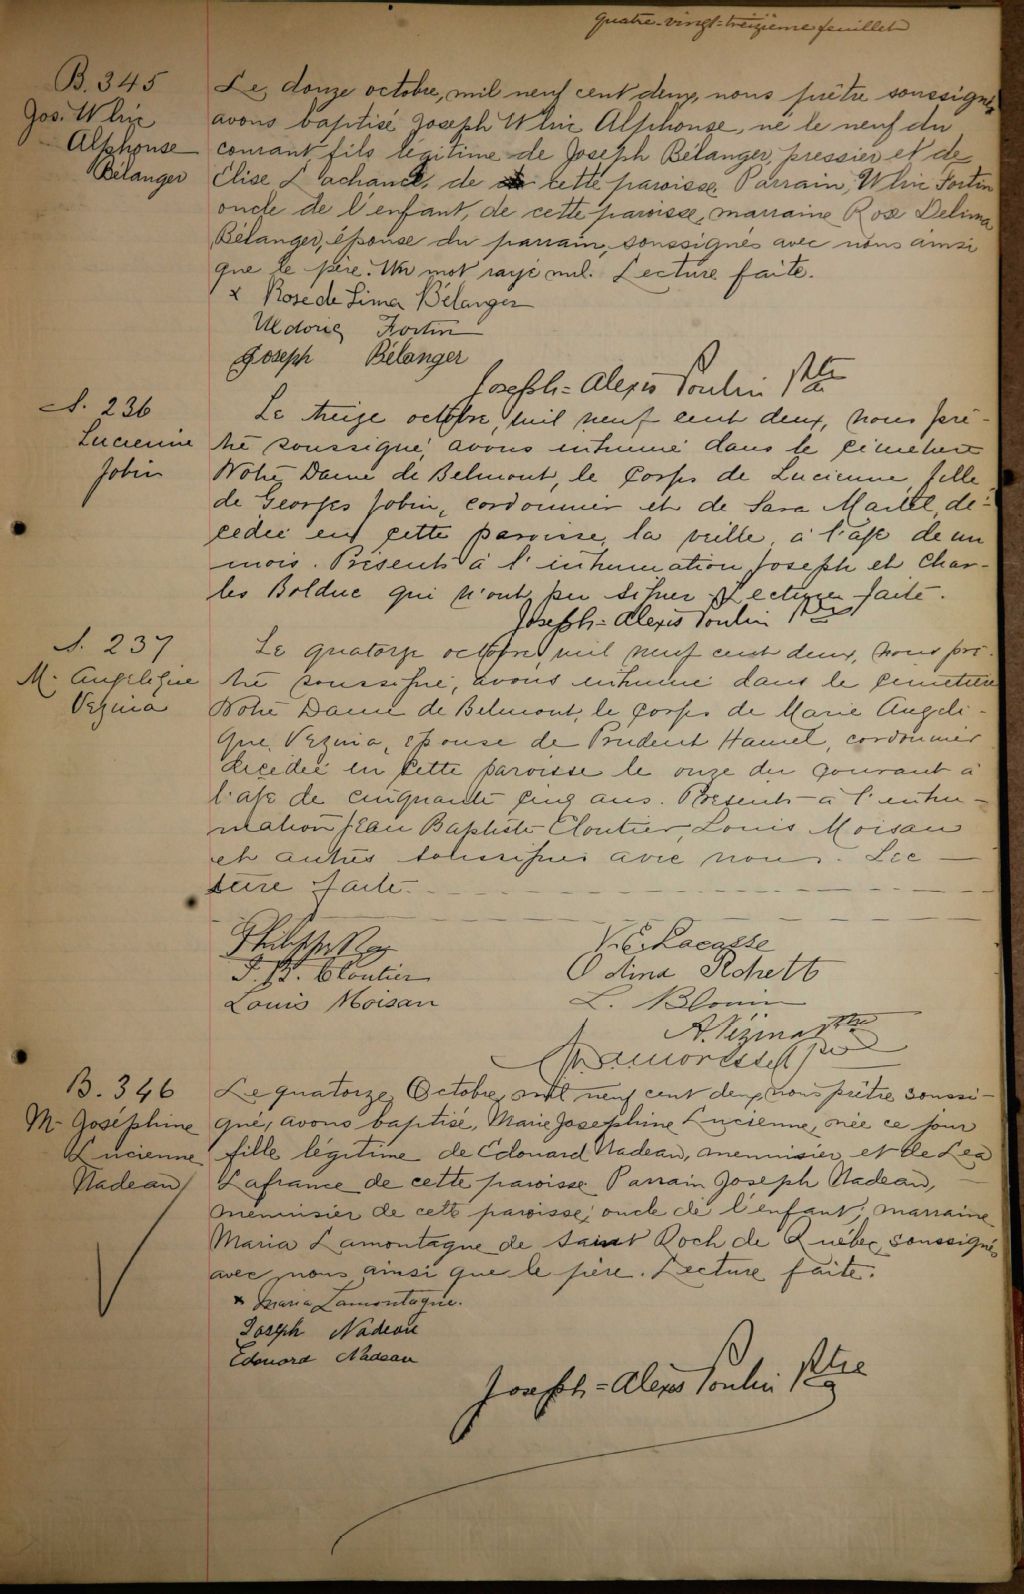 quatre-vingt-treizième feuillet
B. 345
Jos. Ulric
Alphonse
Bélanger
Le douze octobre, mil neuf cent deux, nous prêtre soussigné,
avons baptisé Joseph Ulric Alphonse, né le neuf du
courant, fils légitime de Joseph Bélanger, pressier et de
Elise Lachance, de cette paroisse. Parrain, Ulric Fortin
oncle de l'enfant, de cette paroisse, marraine Rose Delima
Bélanger, épouse du parrain, soussignés avec nous ainsi
que le père. Un mot rayé nul. Lecture faite.
x Rose de Lima Bélanger
Fortin
Joseph Bélanger
Joseph-Alexis Poulin Ptre
S. 236
Lucienne
Jobin
Le treize octobre, mil neuf cent deux, nous prê-
tre soussigné, avons inhumé dans le cimetière
Notre Dame de Belmont, le corps de Lucienne, fille
de Georges Jobin, cordonnier et de Sara Martel, dé-
cédée en cette paroisse, la veille, à l'âge de un
mois. Présents à l'inhumation Joseph et Char-
les Bolduc qui n'ont pu signer. Lecture faite.
Joseph-Alexis Poulin Ptre
S. 237
M. Angélique
Vezina
Le quatorze octobre, mil neuf cent deux, nous prê-
tre soussigné, avons inhumé dans le cimetière
Notre Dame de Belmont, le corps de Marie Angéli-
que Vezina, épouse de Prudent Hamel, cordonnier
décédée en cette paroisse le onze du courant à
l'âge de cinquante cinq ans. Présents à l'inhu-
mation Jean Baptiste Cloutier, Louis Moisan
et autres soussignés avec nous. Lec-
ture faite.
Philippe Roy
J. B. Cloutier
Louis Moisan
V. E. Lacasse
Odina Robett
L. Blouin
A. Vézina Ptre
B. 346
M- Joséphine
Lucienne
Nadeau
Le quatorze Octobre, mil neuf cent deux, nous prêtre soussi-
gné, avons baptisé, Marie Josephine Lucienne, née ce jour
fille légitime de Edouard Nadeau, menuisier, et de Lea
Lafrance de cette paroisse. Parrain Joseph Nadeau,
menuisier de cette paroisse, oncle de l'enfant; marraine
Maria Lamontagne de Saint Roch de Québec, soussignés
avec nous ainsi que le père. Lecture faite.
x Maria Lamontagne.
Joseph Nadeau
Edouard Nadeau
Joseph-Alexis Poulin Ptre